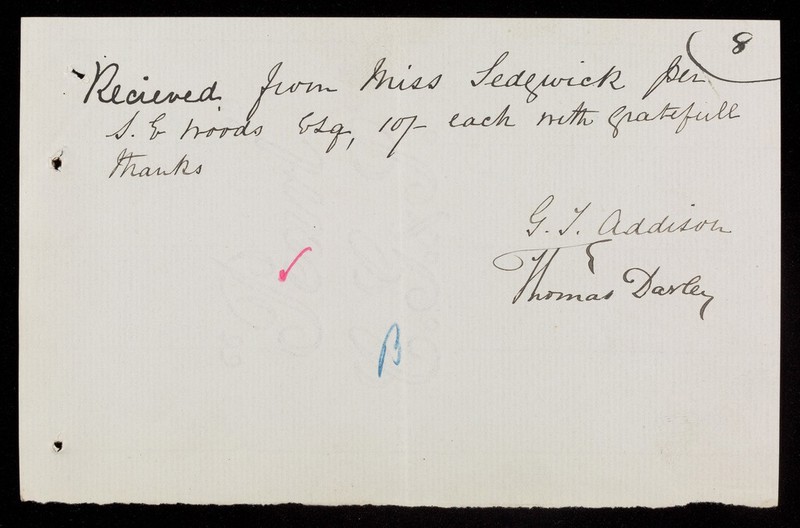 8
Recieved from Miss Sedgwick per
S. E Woods Esq, 10/- each with gratefull
thanks
G. T. Addison
Thomas Darley
B